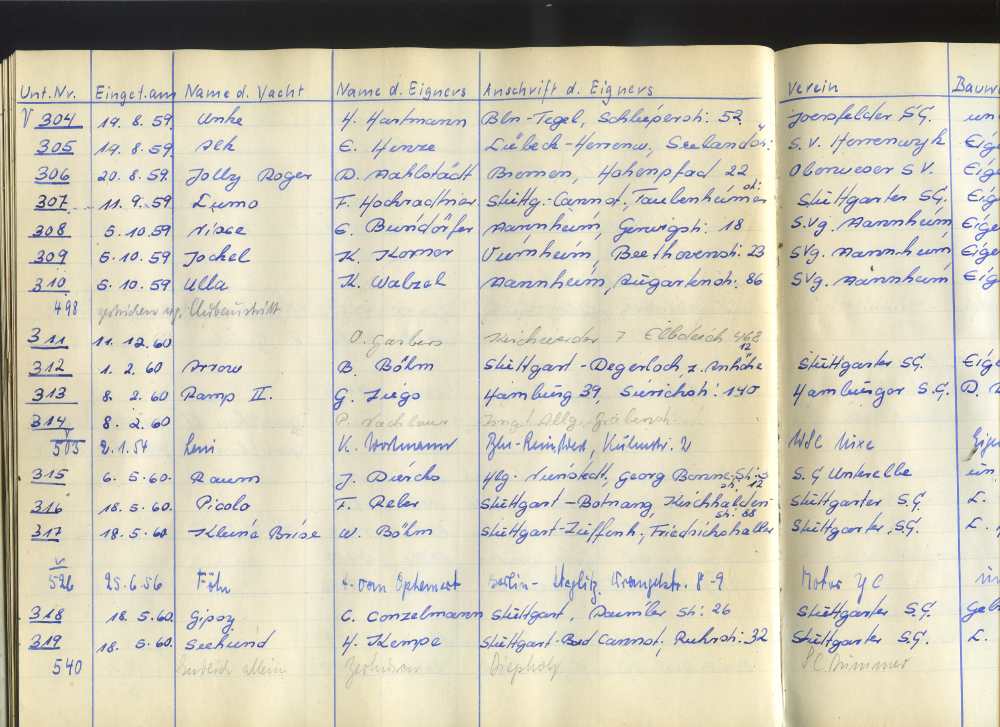 Unt. Nr. Einget. am Name d. Yacht Name d. Eigners Anschrift d. Eigners Verein Bauw
V 304 19. 8. 59. Unke H. Hartmann Bln-Tegel, Schlieperstr. 52 Joersfelder SG. un
305 19. 8. 59. Elk E. Henze Lübeck-Herrenw., Seelandstr. 4 S. V. Herrenwyk Eig
306 20. 8. 59. Jolly Roger D. Mahlstädt Bremen, Hahenpfad 22 Oberweser S V. Eige
307 11. 9. 59 Lumo F. Hochradtner Stuttg.-Cannst., Taubenheimer str. Stuttgarter SG. Eig
308 5. 10. 59 Nixe E. Mannheim, 18 S. Vg. Mannheim Eige
309 5. 10. 59 Jockel K. Korner Viernheim, Beethovenstr. 23 SVg. Mannheim Eig
310 5. 10. 59 Ulla K. Walzel Mannheim, 86 SVg. Mannheim Eig
498 gestrichen wg. Clubaustritt
311 11. 12. 60 O. Garbers Kirchwerder 7 Elbdeich 468
312 1. 2. 60 Arrow B. Böhm Stuttgart-Degerloch, z. Anhöhe 12 Stuttgarter SG. Eige
313 8. 2. 60 Ramp II. G. Ziegs Hamburg 39, Sierichstr. 190 Hamburger S. G. D.
314 8. 2. 60 P.
V 503 2. 1. 54 Leni K. Wortmann Bln- WSC Nixe Eigen
315 6. 5. 60. J. Diercks Hbg.-Nienstedt., Georg Bonne-Str. S. G Unterelbe un
316 18. 5. 60. Picolo F. Reler Stuttgart-Botnang, Kirchhalden str. 12 Stuttgarter S.G. L.
317 18. 5. 60 Kleine Brise W. Böhm Stuttgart-Zuffenh., Friedrichshaller str. 68 Stuttgarter, SG. L.
V 526 25. 6. 56 Föhn Berlin-Steglitz, Wrangelstr. 8-9 Motor YC
318 18. 5. 60. Gipsy C. Conzelmann Stuttgart, Daimler Str. 26 Stuttgarter SG. Geb
319 18. 5. 60. Seehund H. Kempe Stuttgart-Bad Cannst., Ruhrstr. 32 Stuttgarter SG. L.
540 endlich allein Diepholz SC. Dümmer